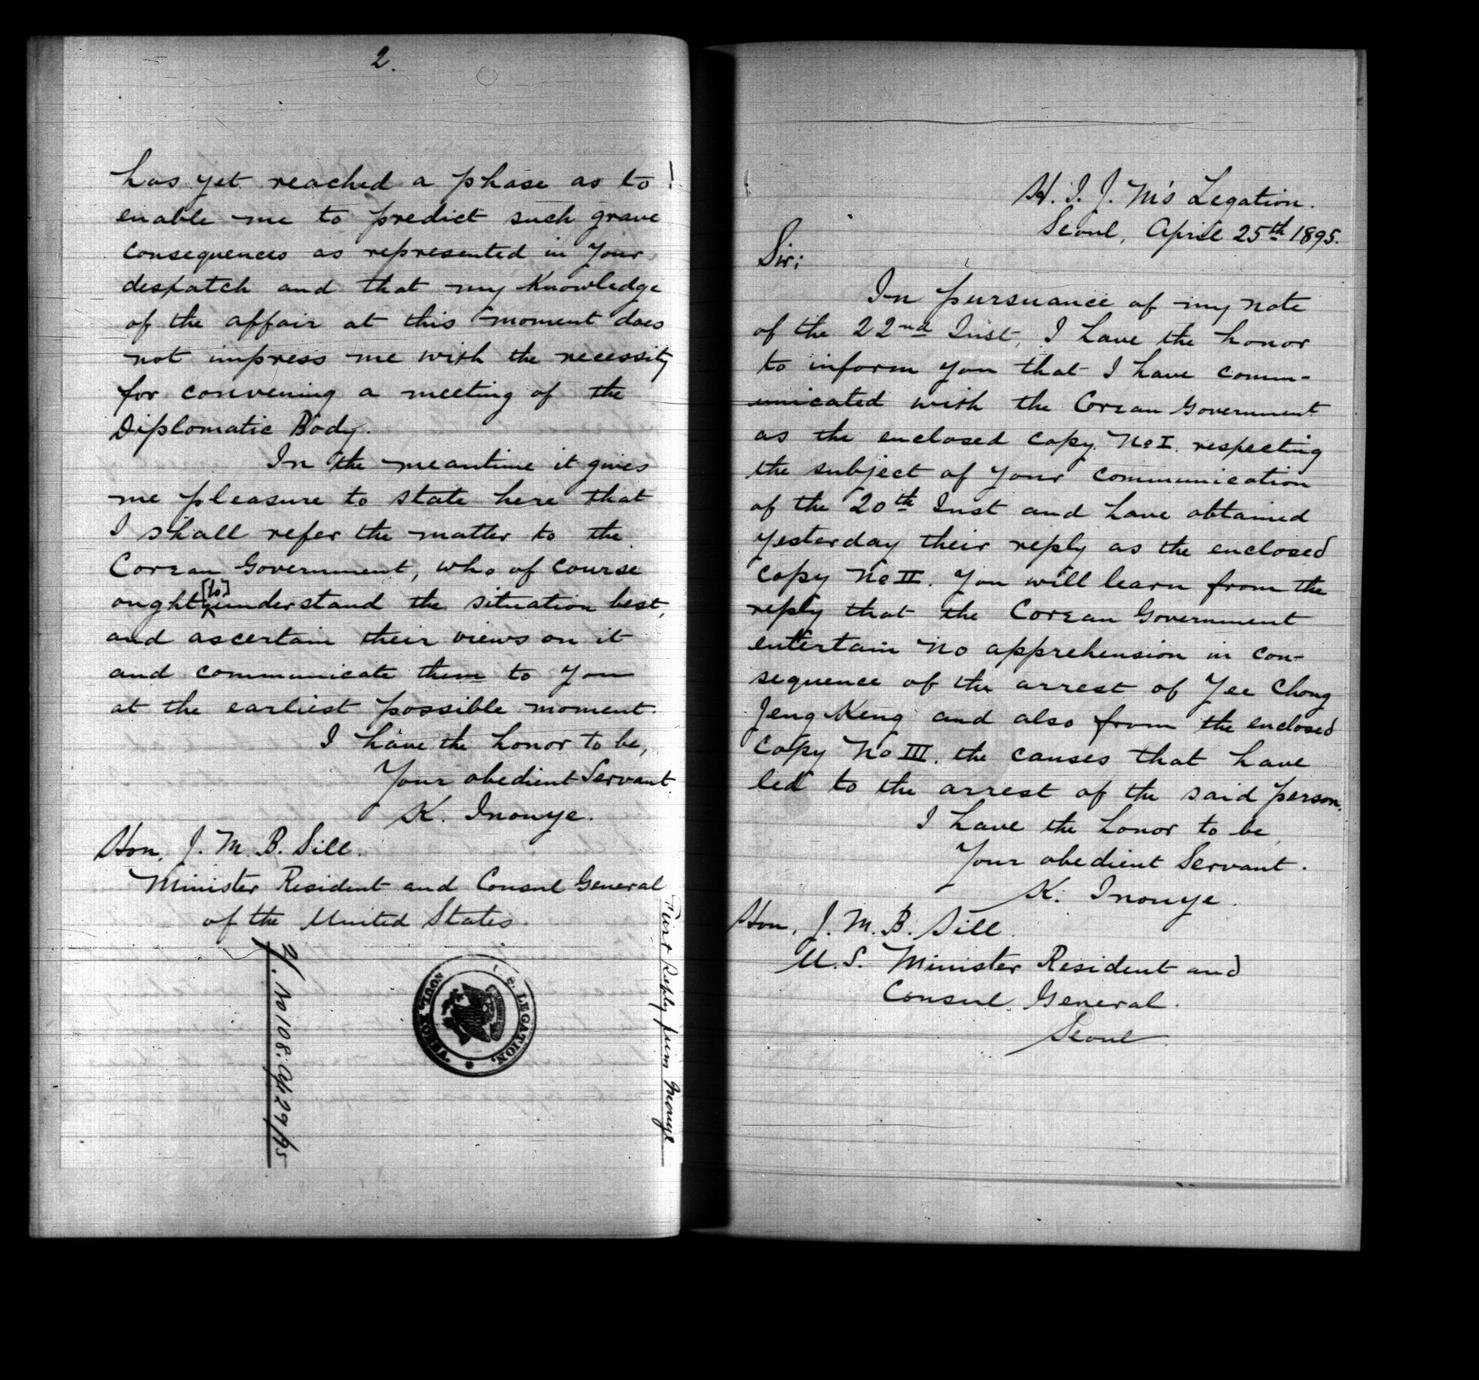 2.
has yet reached a phase as to
enable me to predict such grave
consequences as represented in your
despatch and that my knowledge
of the affair at this moment does
not impress me with the necessity
for convening a meeting of the
Diplomatic Body.
In the meantime it gives
me pleasure to state here that
I shall refer the matter to the
Corean Government, who of course
ought [to] understand the situation best,
and ascertain their views on it
and communicate them to you
at the earliest possible moment.
I have the honor to be,
Your obedient Servant.
K. Inouye.
Hon. J. M. B. Sill.
Minister Resident and Consul General
of the United States.
No 108. Ap 29/95
U. S. LEGATION, SEOUL, KOREA
First Reply from Inouye
H. I. J. M's Legation.
Seoul, April 25th 1895.
Sir;
In pursuance of my note
of the 22nd Inst, I have the honor
to inform you that I have comm-
unicated with the Corean Government
as the enclosed copy No I. respecting
the subject of your communication
of the 20th Inst and have obtained
yesterday their reply as the enclosed
copy No II. You will learn from the
reply that the Corean Government
entertain no apprehension in con-
sequence of the arrest of Yee Chong
Jeng Keng and also from the enclosed
Copy No III. the causes that have
led to the arrest of the said person.
I have the honor to be,
Your obedient Servant.
K. Inouye.
Hon. J. M. B. Sill.
U. S. Minister Resident and
Consul General.
Seoul